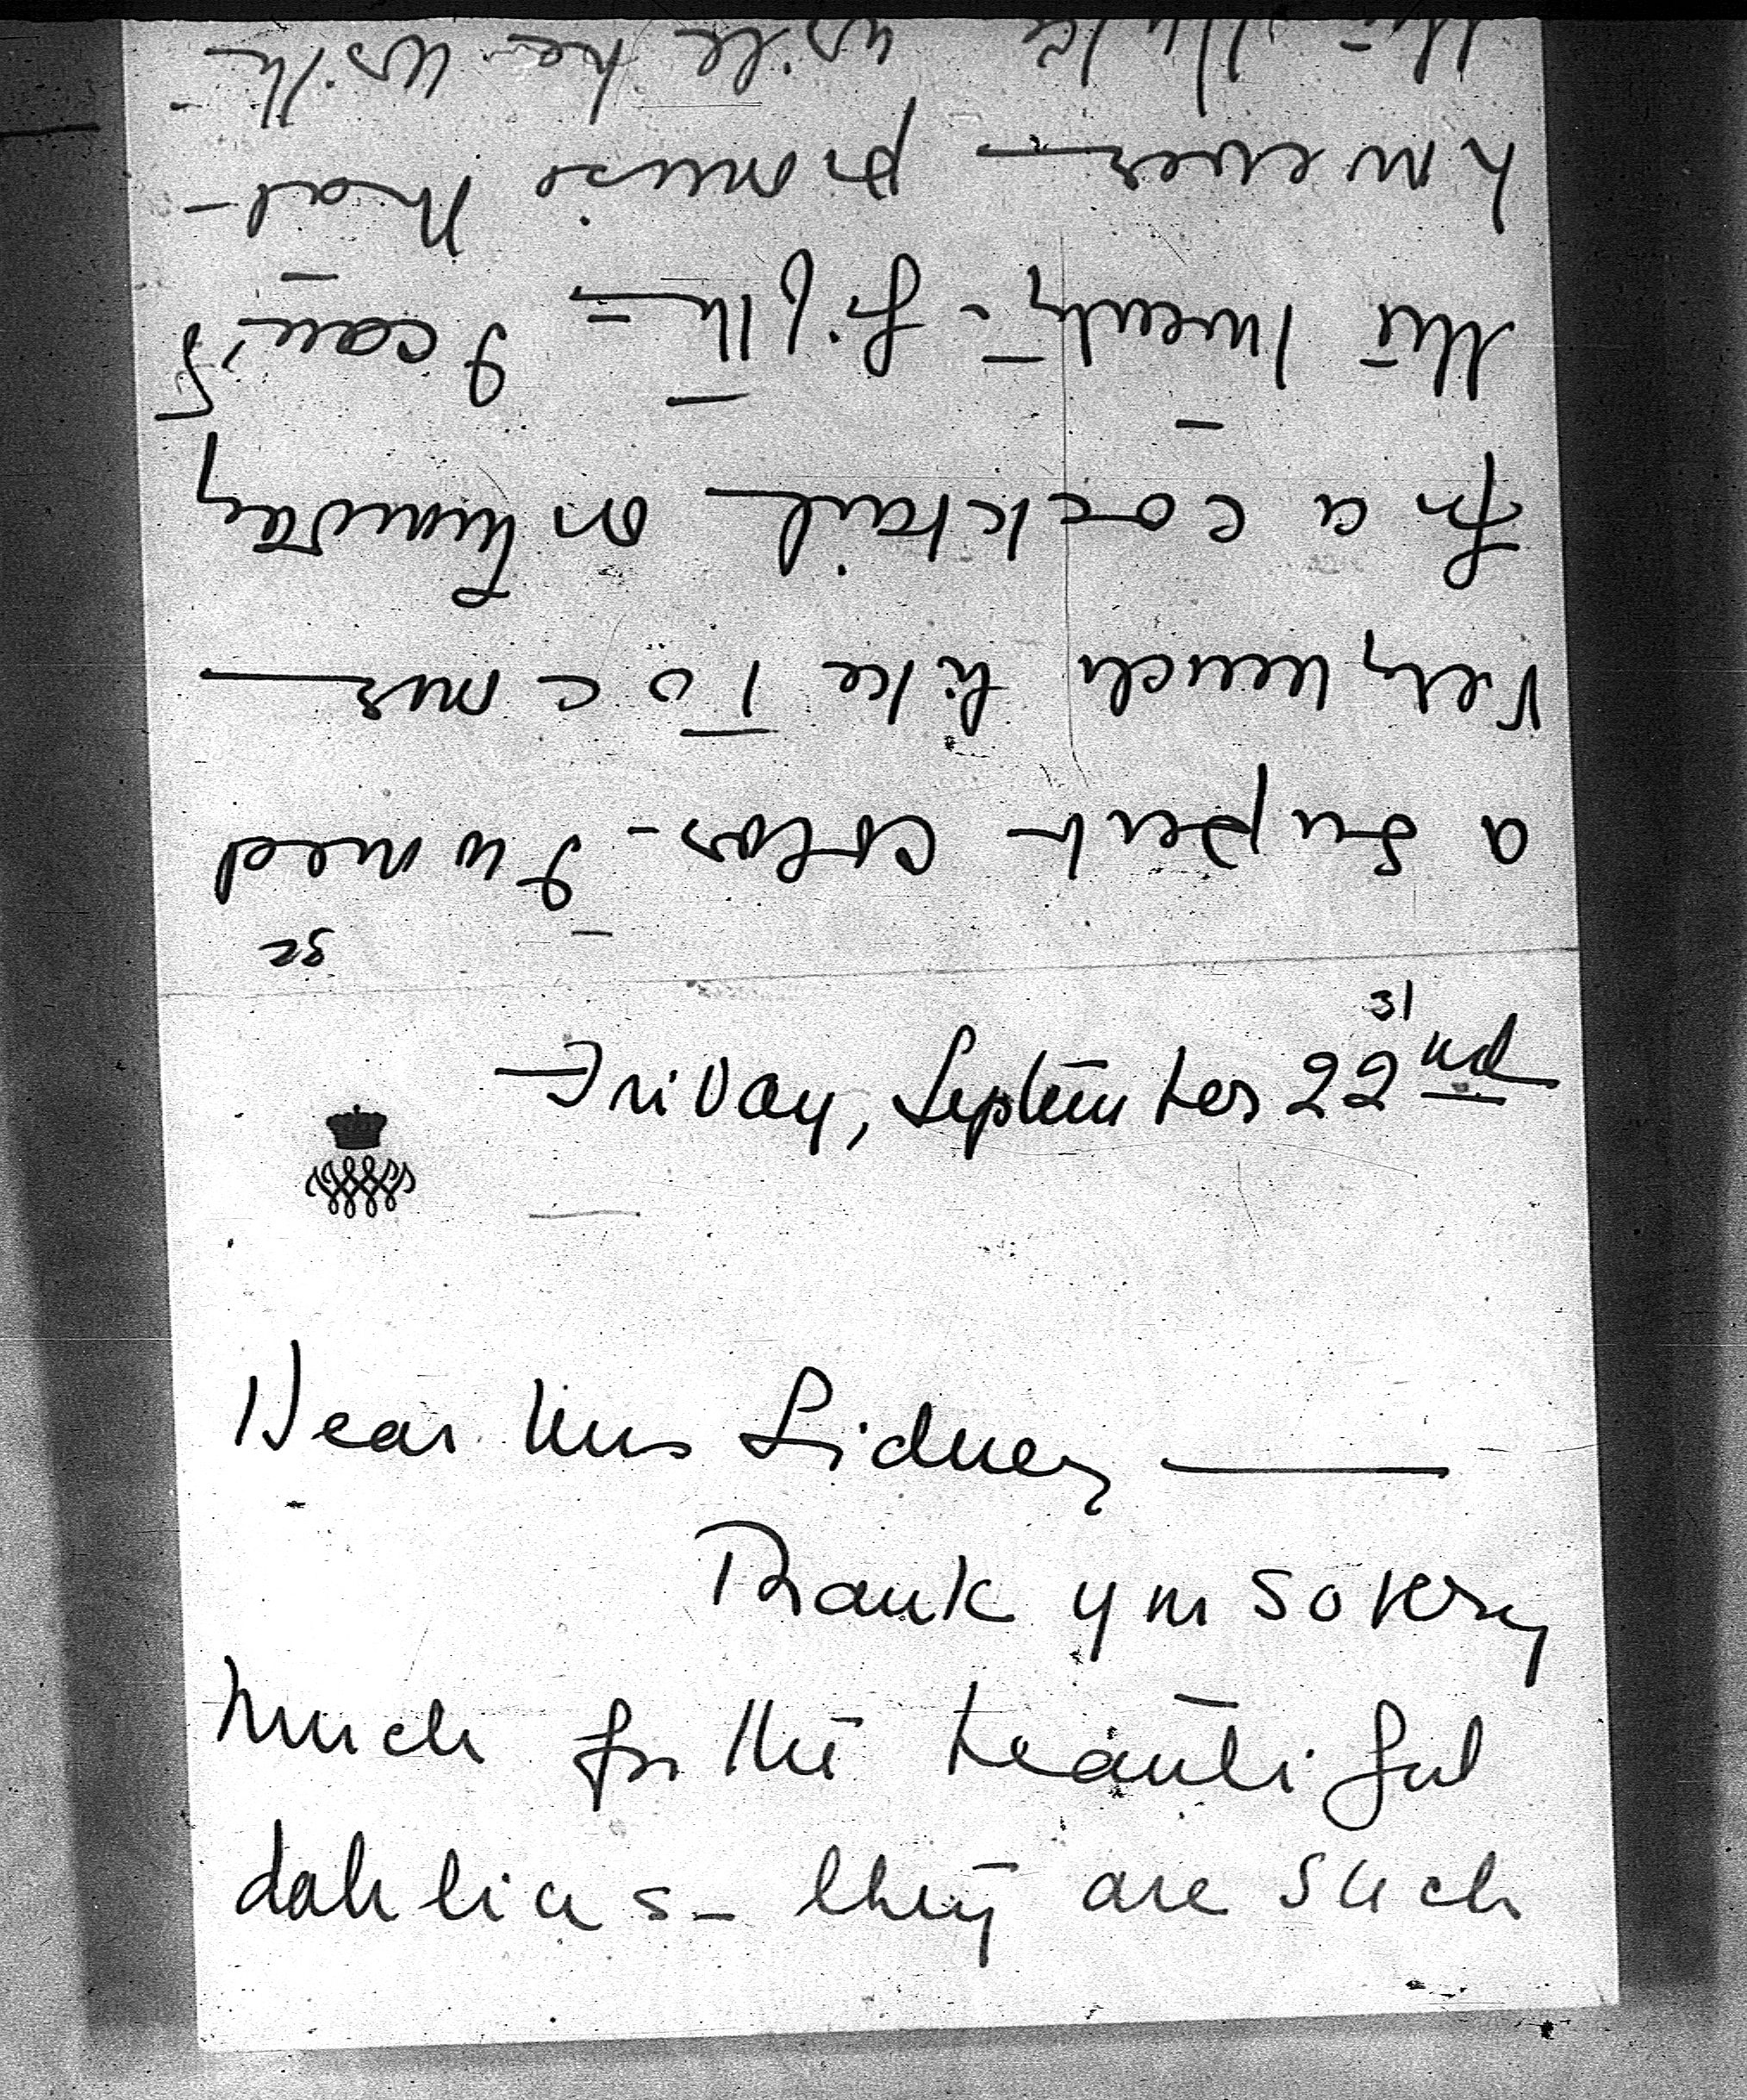 31
Friday, September 22nd
Dear Mrs Sidney —
Thank you so very
much for the beautiful
dahlias - they are such
32
a superb color - I would
very much like to come
for a cocktail on Monday
the twenty-fifth - I can't
however promise that
the Duke will be with